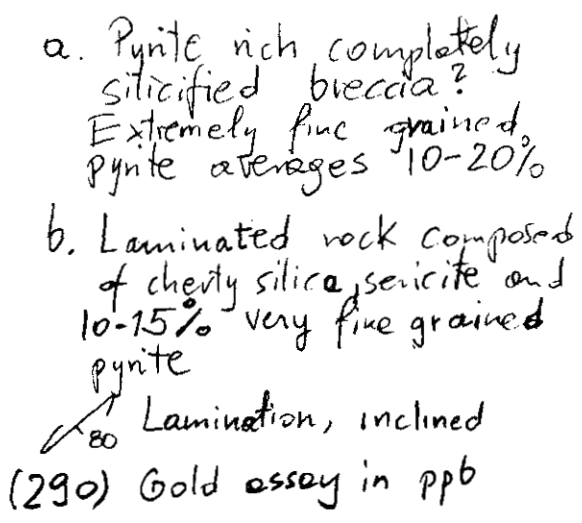 a. Pyrite rich completely
silicified breccia?
Extremely fine grained,
pyrite averages 10-20%
b. Laminated rock composed
of cherty silica, sericite and
10-15% very fine grained
pyrite
80 Lamination, inclined
(290) Gold assay in ppb